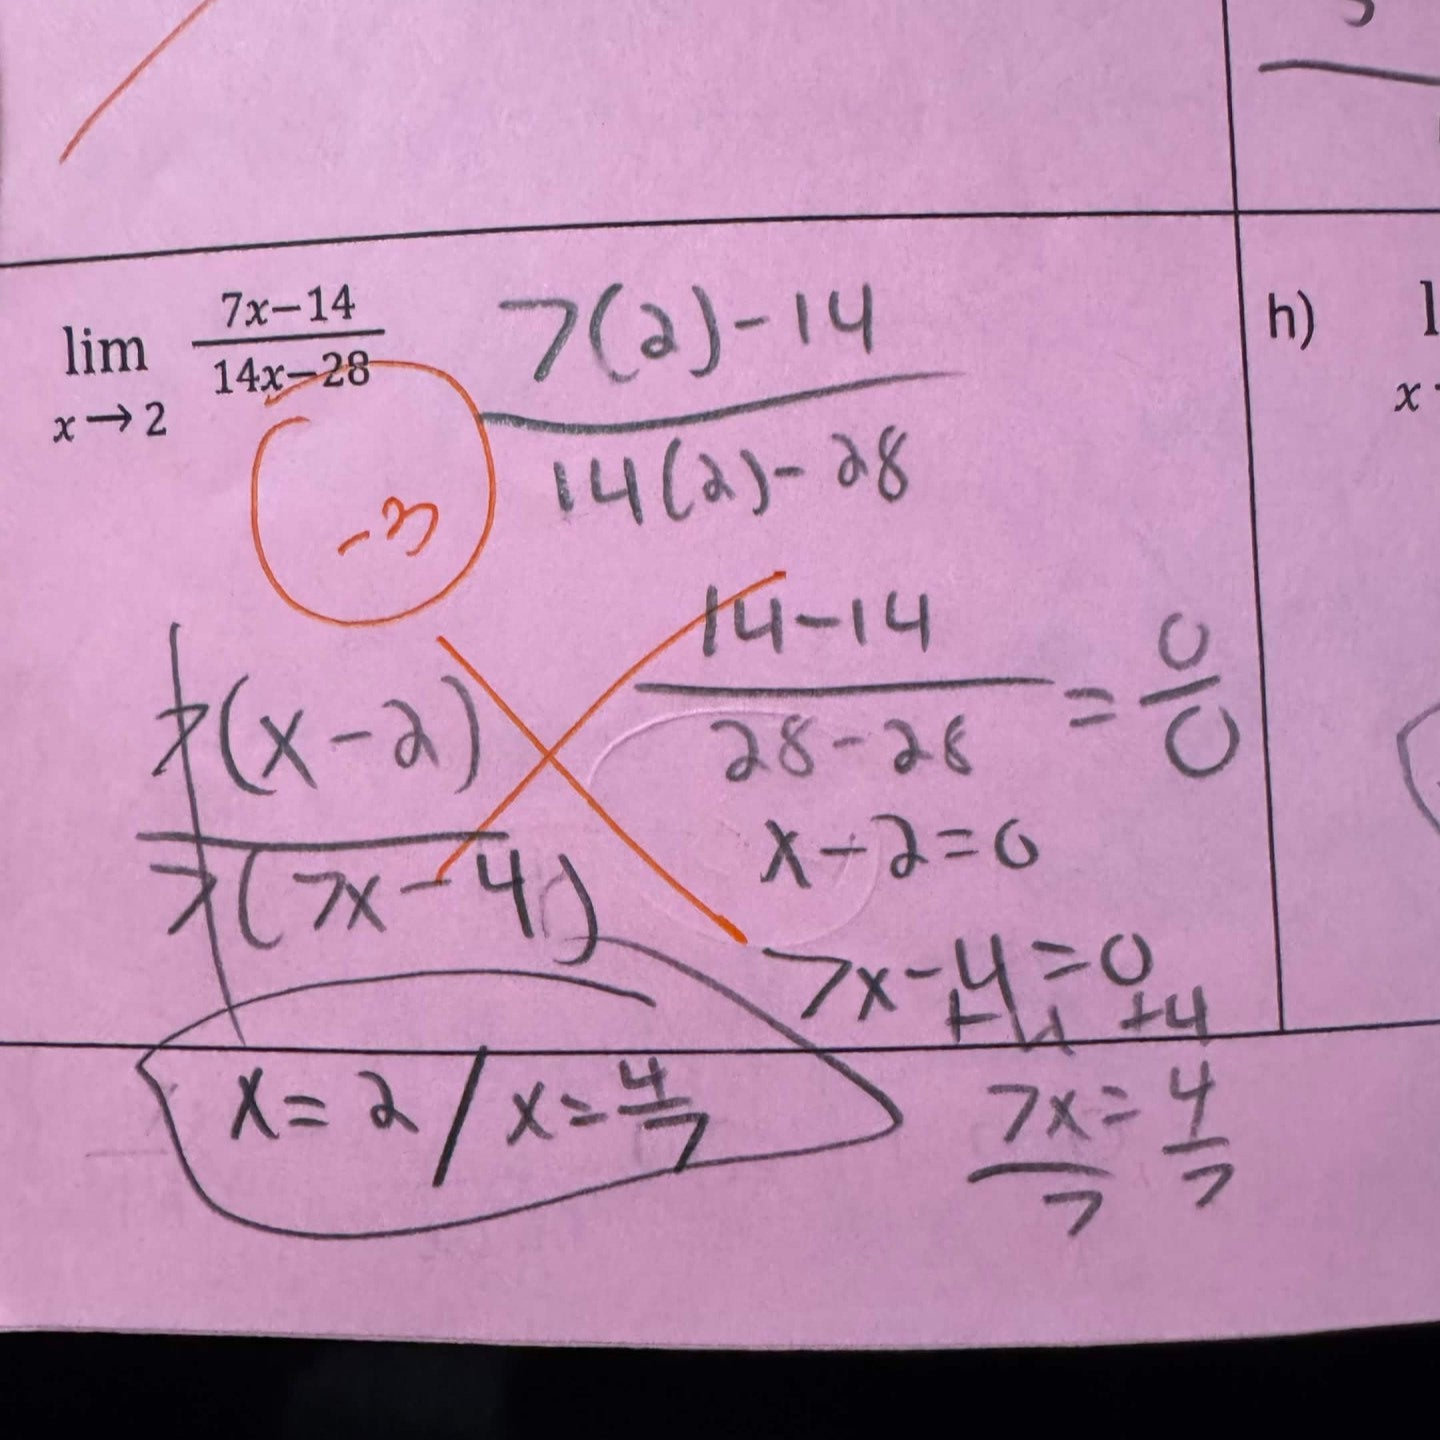 lim 7x−14
14x−28
x→2
7(2)-14
14(2)-28
-3
14-14
28-28
= 0
0
7(x-2)
7(7x-4)
x-2=0
7x-4=0
+4 +4
7x=4
7 7
x=2/x=4
7
h)
x